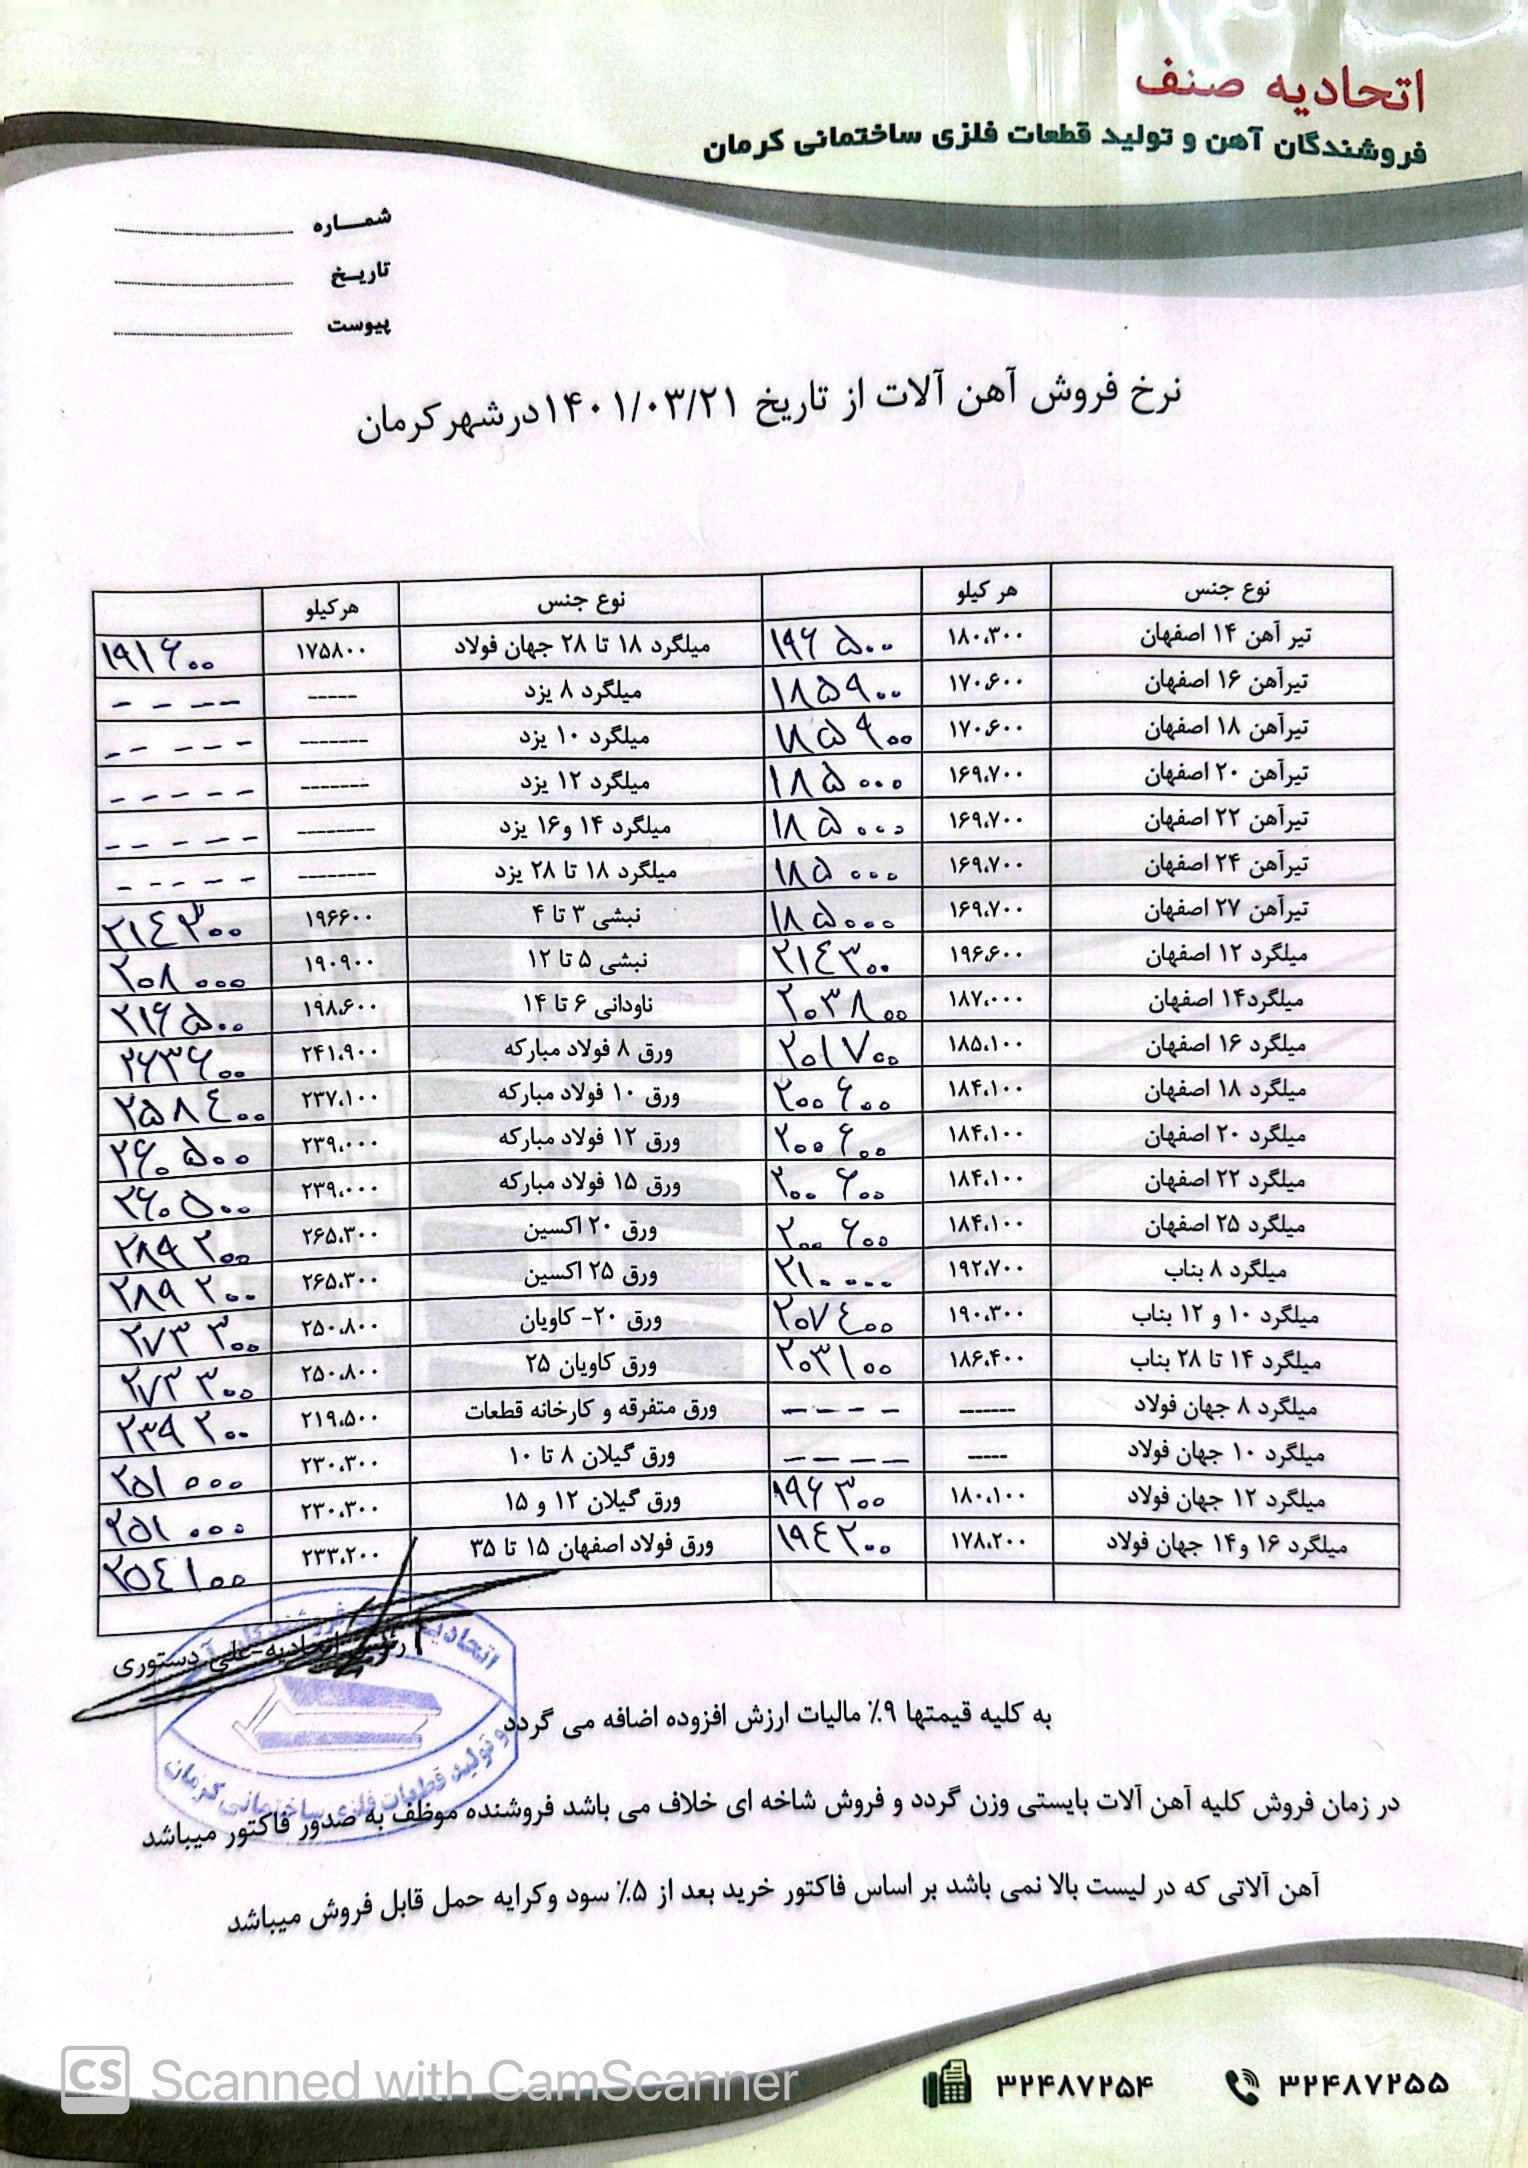 اتحادیه صنف
فروشندگان آهن و تولید قطعات فلزی ساختمانی کرمان
شمـــاره
تاریـخ
پیوست
نرخ فروش آهن آلات از تاریخ ۱۴۰۱/۰۳/۲۱ در شهر کرمان
نوع جنس هر کیلو نوع جنس هرکیلو
تیر آهن ۱۴ اصفهان ۱۸۰،۳۰۰ ۱۹۶۵۰۰ میلگرد ۱۸ تا ۲۸ جهان فولاد ۱۷۵۸۰۰ ۱۹۱۶۰۰
تیرآهن ۱۶ اصفهان ۱۷۰،۶۰۰ ۱۸۵۹۰۰ میلگرد ۸ یزد ----- ----
تیرآهن ۱۸ اصفهان ۱۷۰،۶۰۰ ۱۸۵۹۰۰ میلگرد ۱۰ یزد ------- -----
تیرآهن ۲۰ اصفهان ۱۶۹،۷۰۰ ۱۸۵۰۰۰ میلگرد ۱۲ یزد ------- -----
تیرآهن ۲۲ اصفهان ۱۶۹،۷۰۰ ۱۸۵۰۰۰ میلگرد ۱۴ و۱۶ یزد -------- -----
تیرآهن ۲۴ اصفهان ۱۶۹،۷۰۰ ۱۸۵۰۰۰ میلگرد ۱۸ تا ۲۸ یزد -------- -----
تیرآهن ۲۷ اصفهان ۱۶۹،۷۰۰ ۱۸۵۰۰۰ نبشی ۳ تا ۴ ۱۹۶۶۰۰ ۲۱٤۳۰۰
میلگرد ۱۲ اصفهان ۱۹۶،۶۰۰ ۲۱٤۳۰۰ نبشی ۵ تا ۱۲ ۱۹۰۹۰۰ ۲۰۸۰۰۰
میلگرد۱۴ اصفهان ۱۸۷،۰۰۰ ۲۰۳۸۰۰ ناودانی ۶ تا ۱۴ ۱۹۸،۶۰۰ ۲۱۶۵۰۰
میلگرد ۱۶ اصفهان ۱۸۵،۱۰۰ ۲۰۱۷۰۰ ورق ۸ فولاد مبارکه ۲۴۱،۹۰۰ ۲۶۳۶۰۰
میلگرد ۱۸ اصفهان ۱۸۴،۱۰۰ ۲۰۰۶۰۰ ورق ۱۰ فولاد مبارکه ۲۳۷،۱۰۰ ۲۵۸٤۰۰
میلگرد ۲۰ اصفهان ۱۸۴،۱۰۰ ۲۰۰۶۰۰ ورق ۱۲ فولاد مبارکه ۲۳۹،۰۰۰ ۲۶۰۵۰۰
میلگرد ۲۲ اصفهان ۱۸۴،۱۰۰ ۲۰۰۶۰۰ ورق ۱۵ فولاد مبارکه ۲۳۹،۰۰۰ ۲۶۰۵۰۰
میلگرد ۲۵ اصفهان ۱۸۴،۱۰۰ ۲۰۰۶۰۰ ورق ۲۰ اکسین ۲۶۵،۳۰۰ ۲۸۹۲۰۰
میلگرد ۸ بناب ۱۹۲،۷۰۰ ۲۱۰۰۰۰ ورق ۲۵ اکسین ۲۶۵،۳۰۰ ۲۸۹۲۰۰
میلگرد ۱۰ و ۱۲ بناب ۱۹۰،۳۰۰ ۲۰۷٤۰۰ ورق ۲۰- کاویان ۲۵۰،۸۰۰ ۲۷۳۳۰۰
میلگرد ۱۴ تا ۲۸ بناب ۱۸۶،۴۰۰ ۲۰۳۱۰۰ ورق کاویان ۲۵ ۲۵۰،۸۰۰ ۲۷۳۳۰۰
میلگرد ۸ جهان فولاد ------- ---- ورق متفرقه و کارخانه قطعات ۲۱۹،۵۰۰ ۲۳۹۲۰۰
میلگرد ۱۰ جهان فولاد ----- ---- ورق گیلان ۸ تا ۱۰ ۲۳۰،۳۰۰ ۲۵۱۰۰۰
میلگرد ۱۲ جهان فولاد ۱۸۰،۱۰۰ ۱۹۶۳۰۰ ورق گیلان ۱۲ و ۱۵ ۲۳۰،۳۰۰ ۲۵۱۰۰۰
میلگرد ۱۶ و۱۴ جهان فولاد ۱۷۸،۲۰۰ ۱۹٤۲۰۰ ورق فولاد اصفهان ۱۵ تا ۳۵ ۲۳۳،۲۰۰ ۲۵٤۱۰۰
رئیس اتحادیه-علی دستوری
و تولید قطعات فلزی ساختمانی کرمان
به کلیه قیمتها ۹٪ مالیات ارزش افزوده اضافه می گردد
در زمان فروش کلیه آهن آلات بایستی وزن گردد و فروش شاخه ای خلاف می باشد فروشنده موظف به صدور فاکتور میباشد
آهن آلاتی که در لیست بالا نمی باشد بر اساس فاکتور خرید بعد از ۵٪ سود وکرایه حمل قابل فروش میباشد
۳۲۴۸۷۲۵۵ ۳۲۴۸۷۲۵۴
CS Scanned with CamScanner